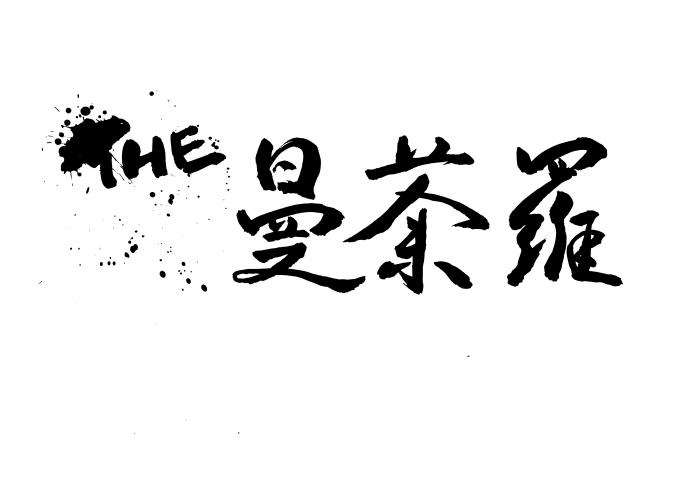 THE 曼荼羅